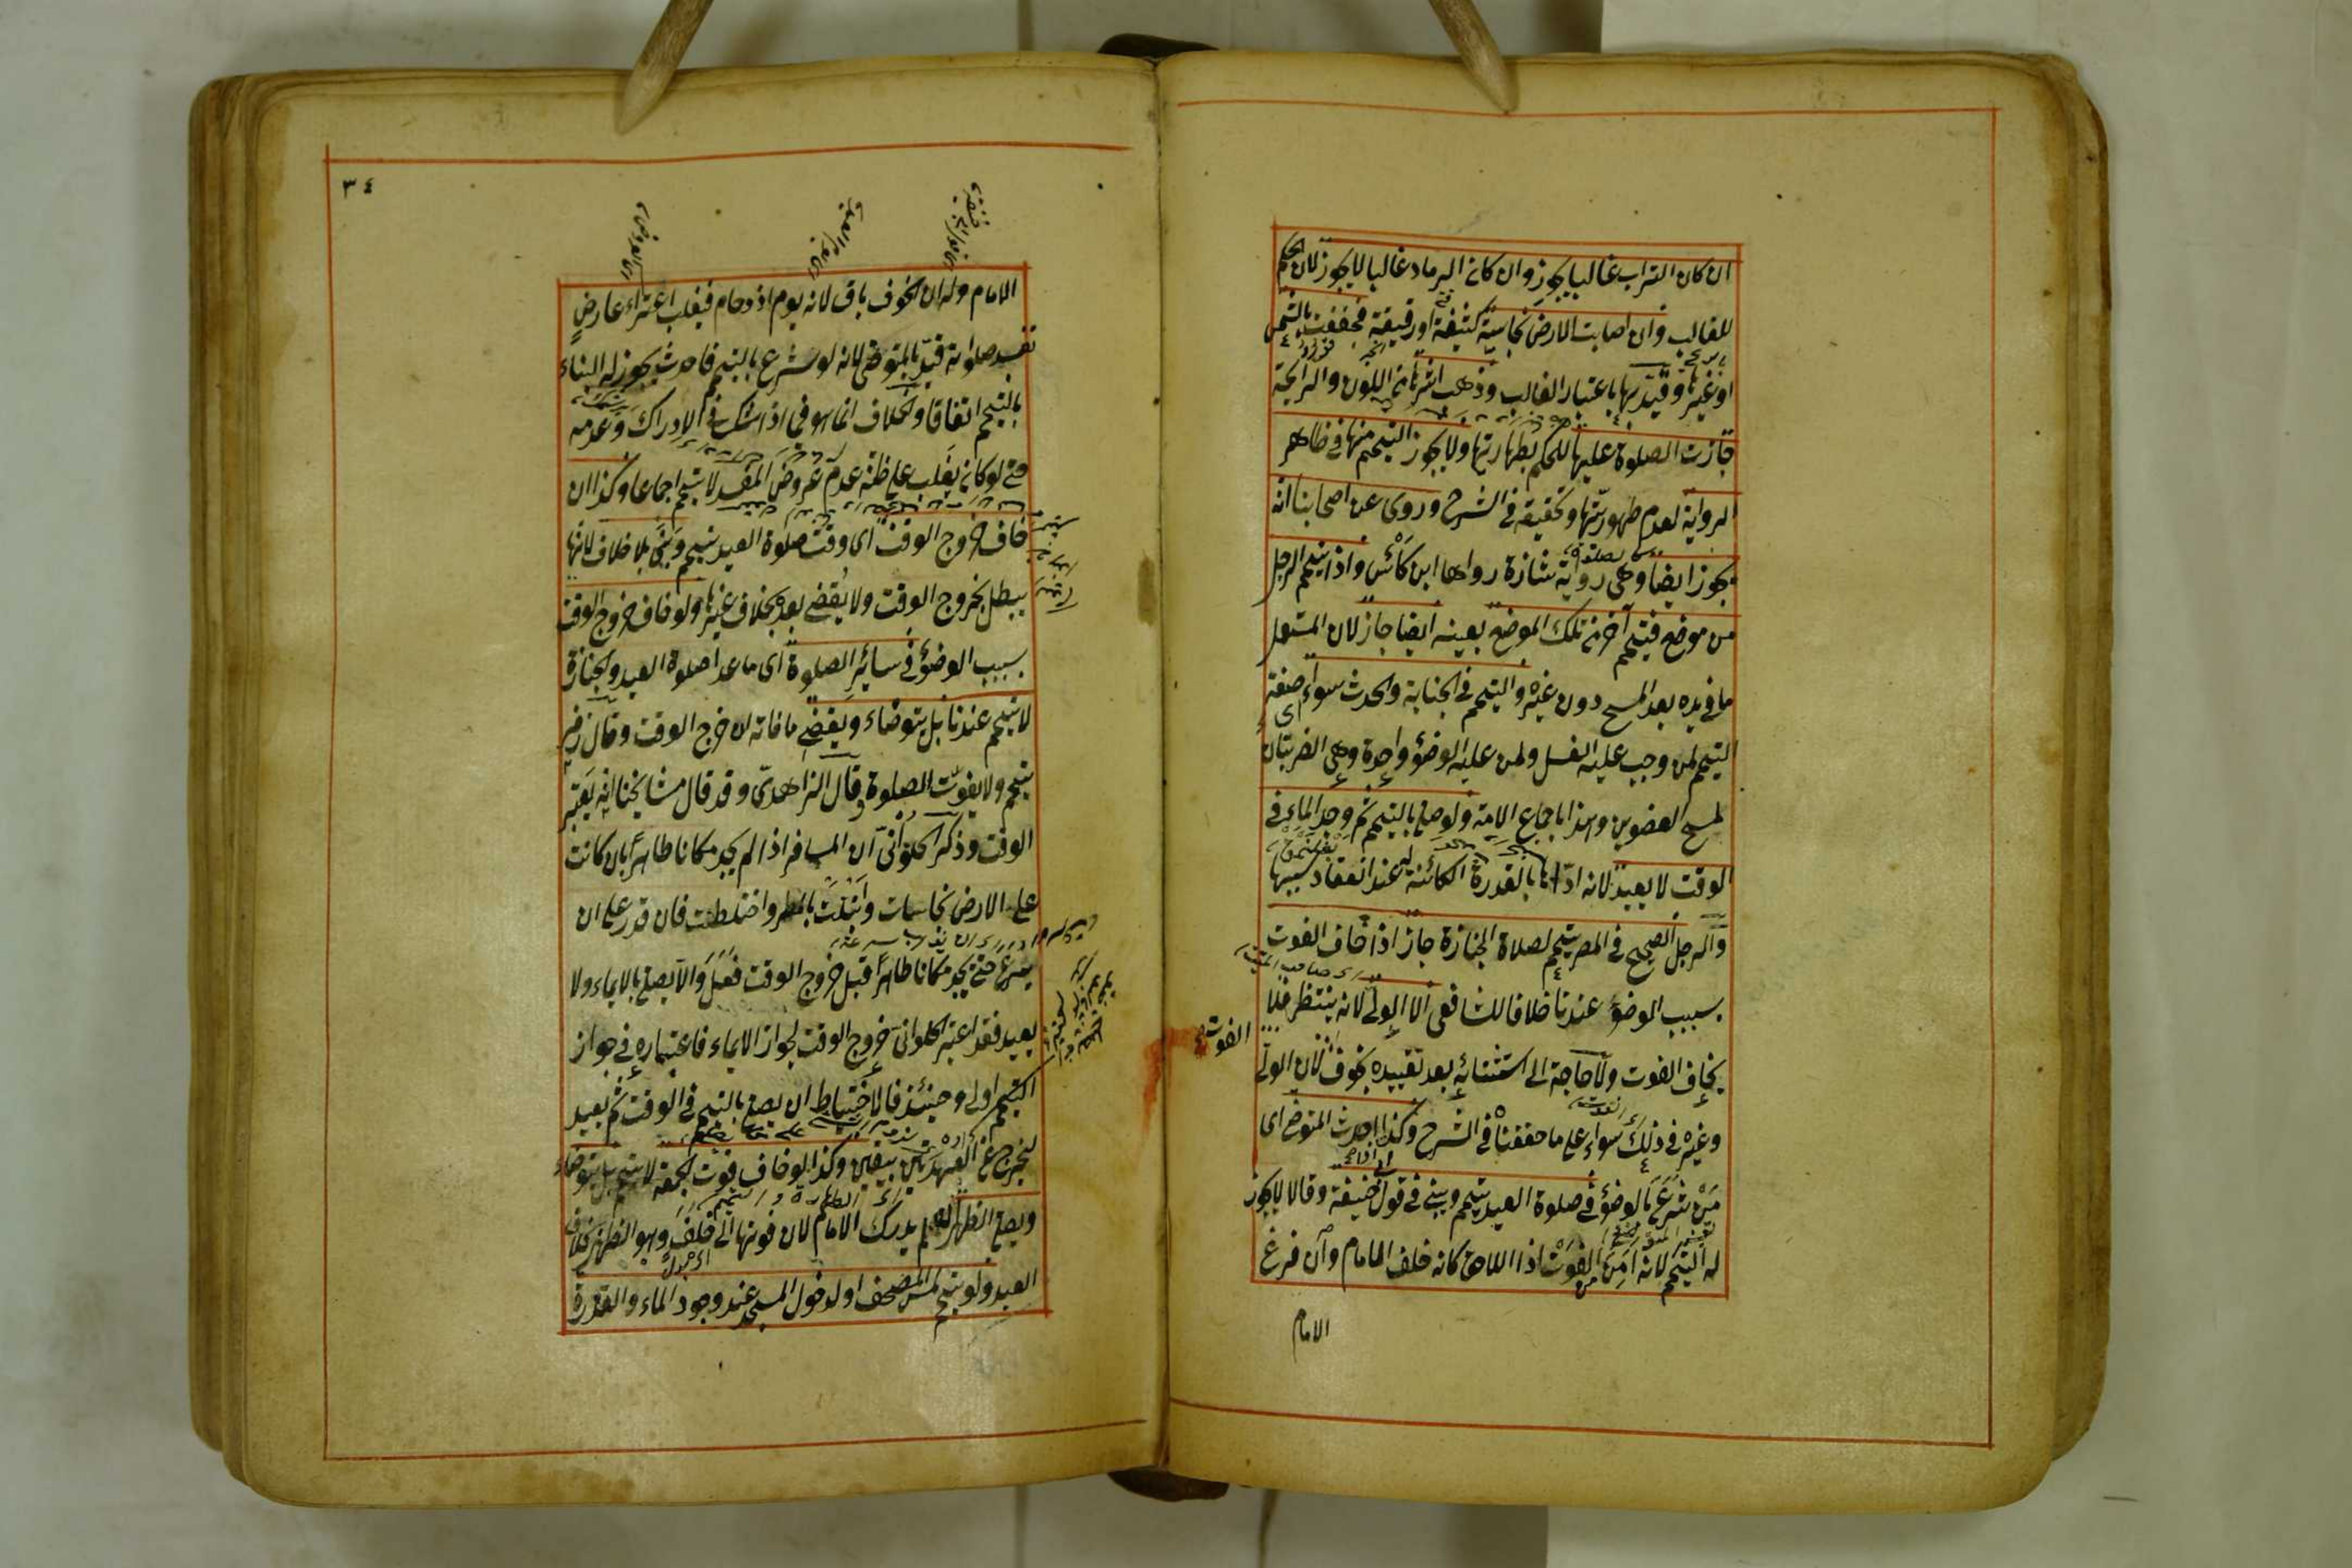 ان كان التراب غالبا يجوز وان كان الرماد غالبا لا يجوز لان الحكم
للغالب وان اصابت الارض نجاسة كثيفة او رقيقة فجففت بالشمس
او غيرها وقيد بها باعتبار الغالب وذهب اثرها من اللون والرايحة
جازت الصلوة عليها للحكم بطهارتها ولا يجوز التيمم منها في ظاهر
الرواية لعدم طهوريتها وتحقيقه في الشرح وروى عن اصحابنا انه
يجوز ايضا وهى رواية شاذة رواها ابن كأس واذا تيمم الرجل
من موضع فتيمم آخر من تلك الموضع بعينه ايضا جاز لان المستعمل
ما في يده بعد المسح دون غيره والتيمم في الجنابة والحدث سواء اى صفة
التيمم لمن وجب عليه الغسل ولمن عليه الوضوء واحدة وهي الضربتان
لمسح العضوين وهذا باجماع الامة ولو صلى بالتيمم ثم وجد الماء في
الوقت لا يعيد لانه اداها بالقدرة الكائنة له عند انعقاد سببها
والرجل الصحيح في المصر يتيمم لصلاة الجنازة جاز اذا خاف الفوت
بسبب الوضوء عندنا خلافا للشافعى الا الولى لانه ينتظر فلا
الفوت
يخاف الفوت ولا حاجة الى استثنائه بعد تقييده بخوف لان الولى
وغيره في ذلك سواء على ما حققناه في الشرح وكذا احدث المتوضى اى
من شرع بالوضوء في صلوة العيد يتيمم ويبنى في قول ابى حنيفة وقالا لا يجوز
له التيمم لانه امن من الفوت اذ اللاحق كانه خلف الامام وان فرغ
الامام
٣٤
الامام وله ان الخوف باق لانه يوم ازدحام فيغلب اعتراء عارض
تفسد صلوته قيد بالمتوضى لانه لو شرع بالتيمم فاحدث يجوز له البناء
بالتيمم اتفاقا والخلاف انما هو في اذا شك في الادراك وعدمه
حتى لو كان يغلب على ظنه عدم عروض المفسد لا يتيمم اجماعا وكذا ان
خاف خروج الوقت اى وقت صلوة العيد تيمم وبنى بلا خلاف لانها
يبطل بخروج الوقت ولا يقضى بعده بخلاف غيرها ولو خاف خروج الوقت
بسبب الوضوء في سائر الصلوة اى ما عدا صلوة العيد والجنازة
لا يتيمم عندنا بل يتوضاء ويقضى ما فاته ان خرج الوقت وقال زفر
يتيمم ولا يفوت الصلوة وقال الزاهدى وقد قال مشايخنا انه يعتبر
الوقت وذكر الحلوانى ان المسافر اذا لم يجد مكانا طاهرا بان كانت
على الارض نجاسات وابتلت بالمطر واختلطت فان قدر على ان
يسرع حتى يجد مكانا طاهرا قبل خروج الوقت فعل والا يصلى بالايماء ولا
يعيد فقد اعتبر الحلوانى خروج الوقت لجواز الايماء فاعتباره في جواز
التيمم اولى وحينئذ فالاحتياط ان يصلى بالتيمم في الوقت ثم يعيد
ليخرج عن العهدتين بيقين وكذا لو خاف فوت الجمعة لا يتيمم بل يتوضاء
ويصلى الظهر ان لم يدرك الامام لان فوتها الى خلف وهو الظهر بخلاف
العيد ولو تيمم لمس المصحف او لدخول المسجد عند وجود الماء والقدرة